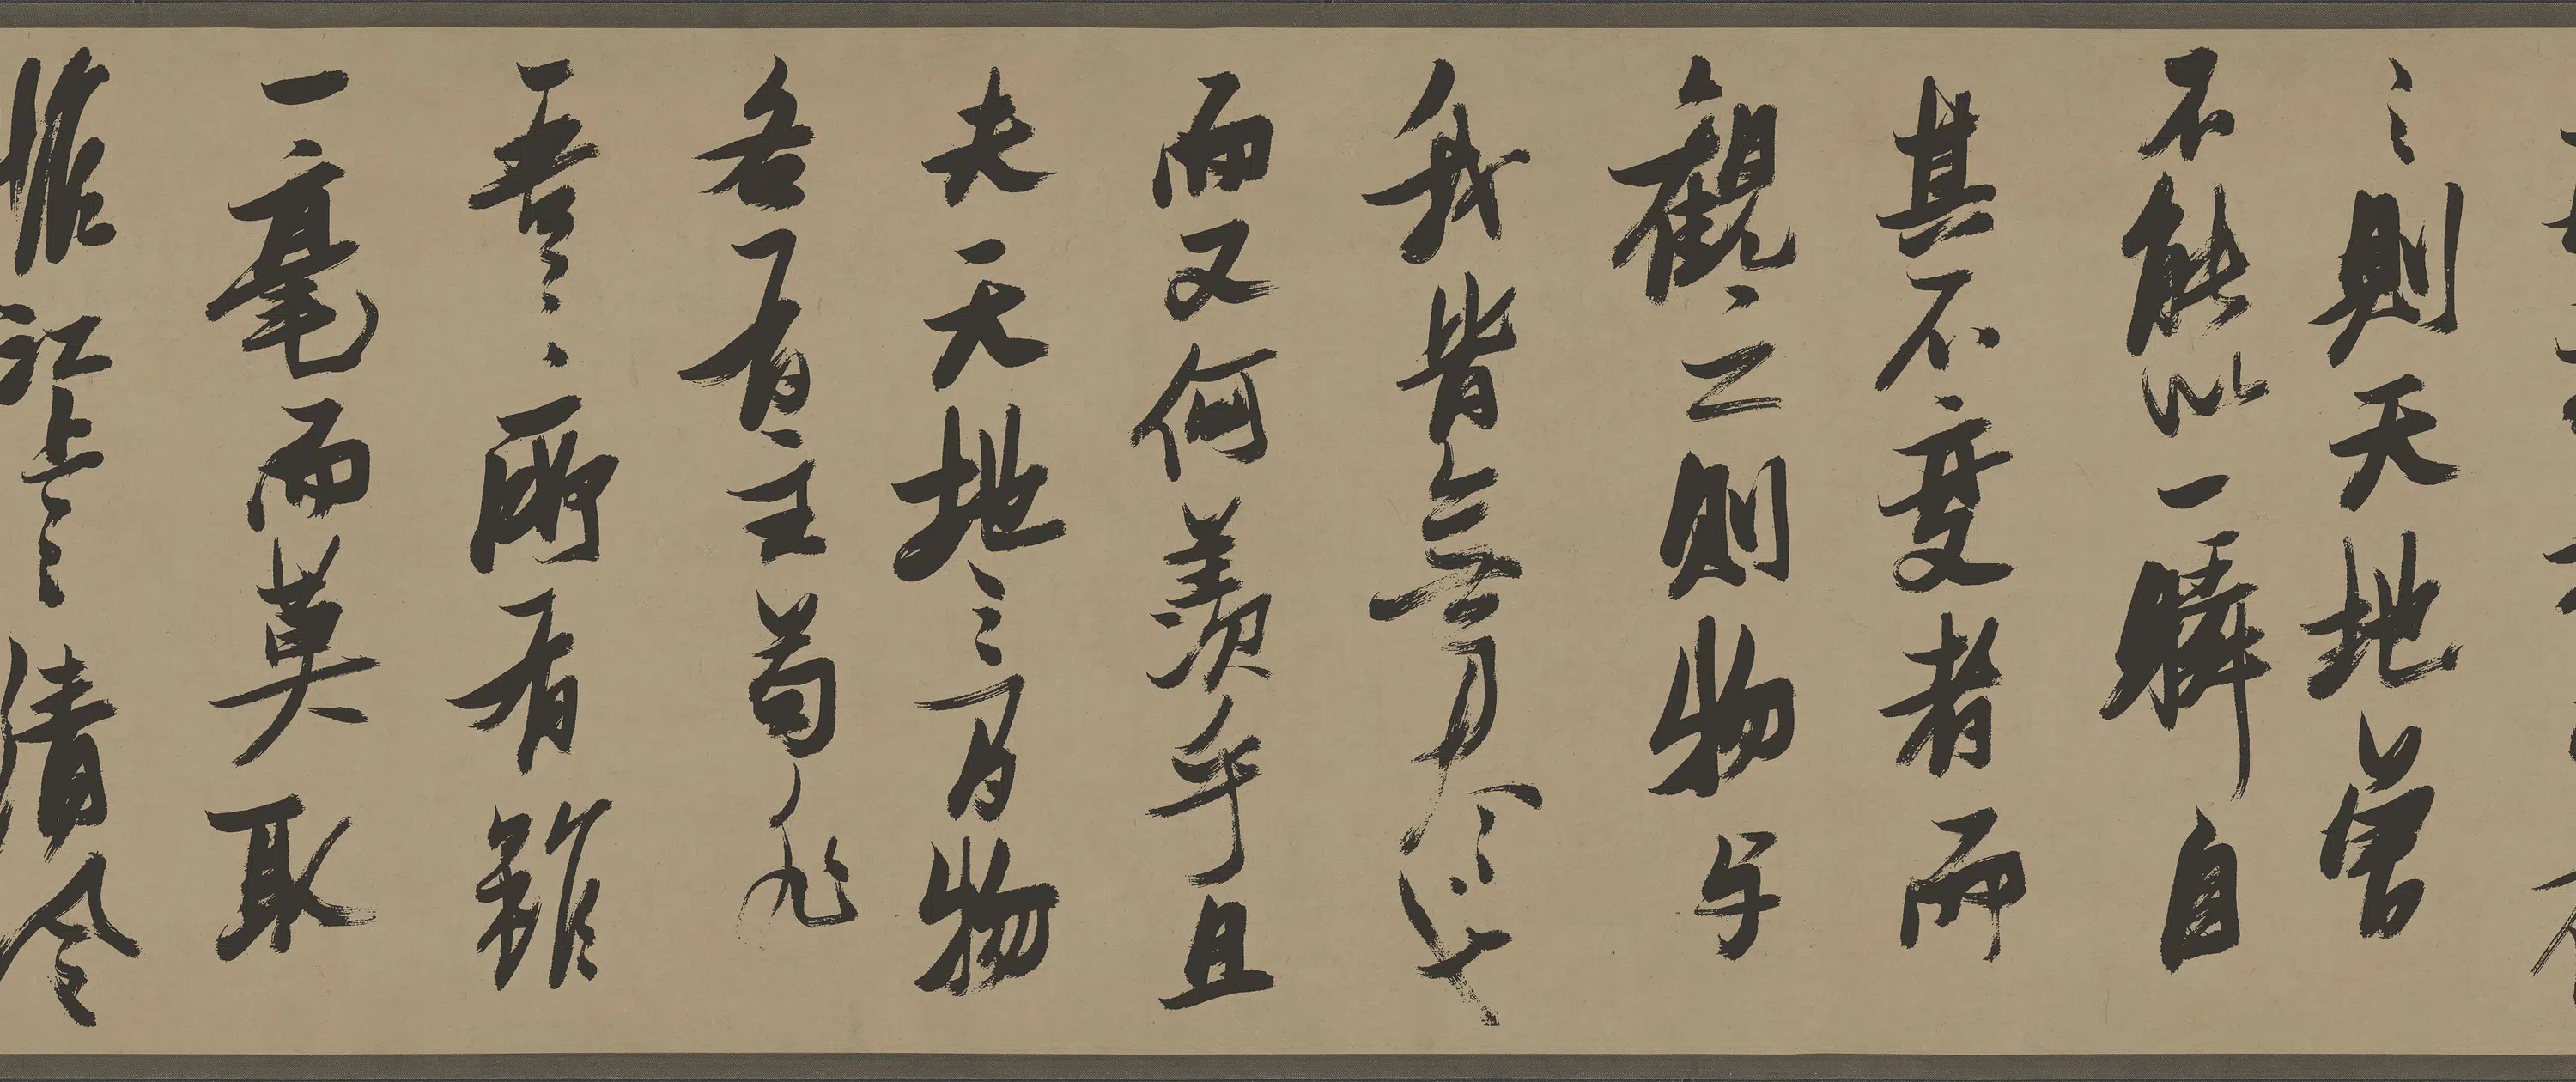 之則天地曾
不能以一瞬自
其不變者而
觀之則物与
我皆無盡也
而又何羨乎且
夫天地之間物
各有主苟非
吾之所有雖
一毫而莫取
惟江上之清風